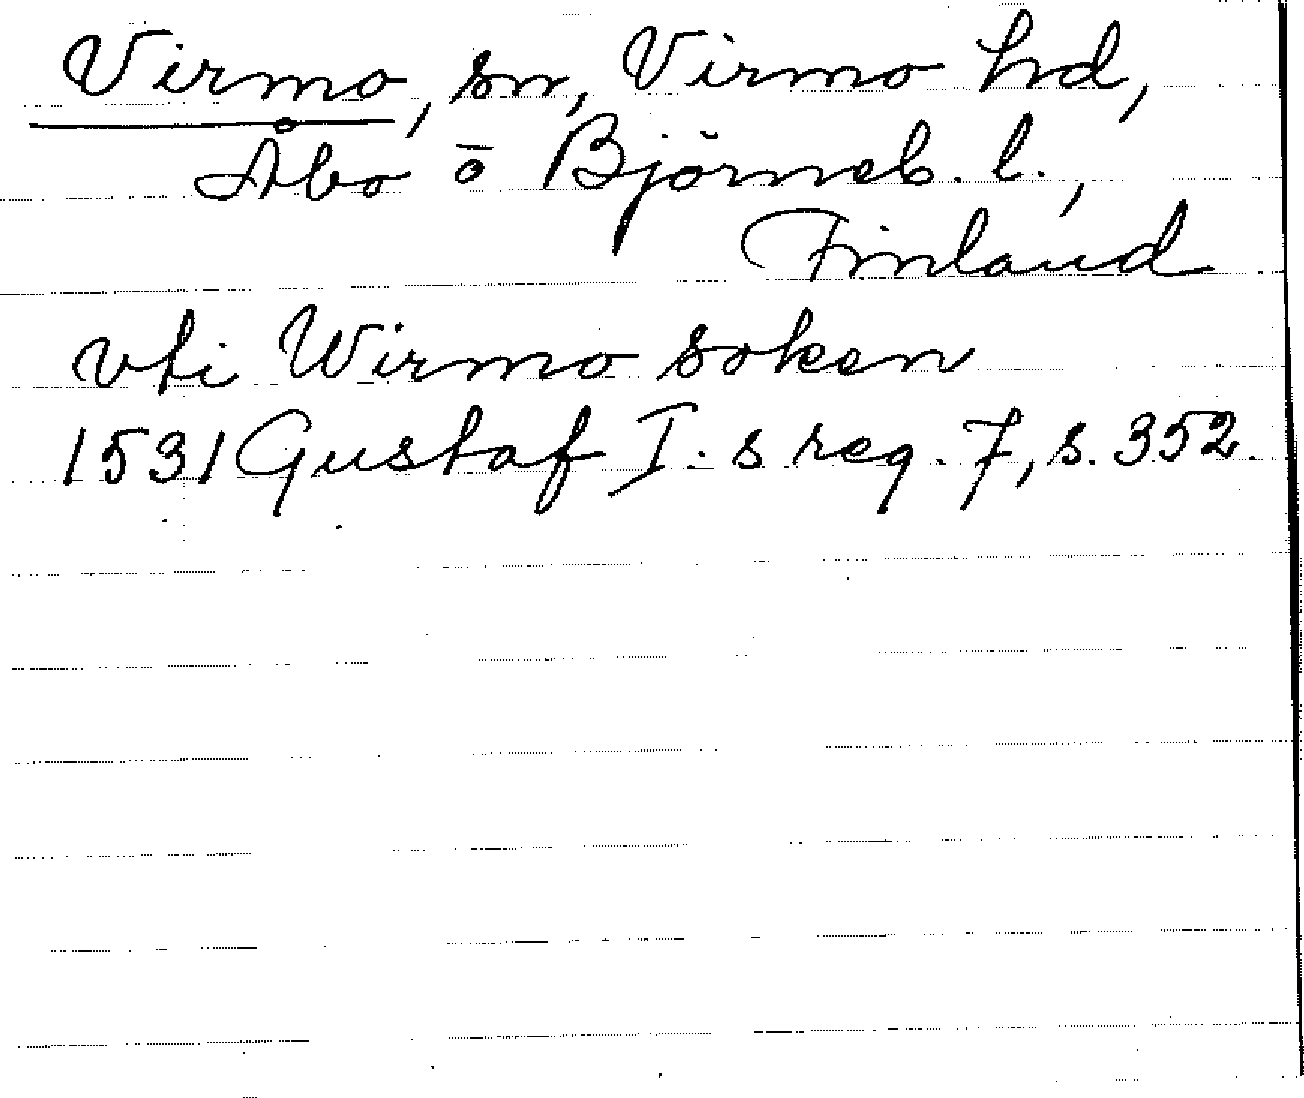 Virmo, sn, Virmo hd,
Åbo o Björneb. l.,
Finland
vti Wirmo soken
1531 Gustaf I.s reg. 7, s. 352.